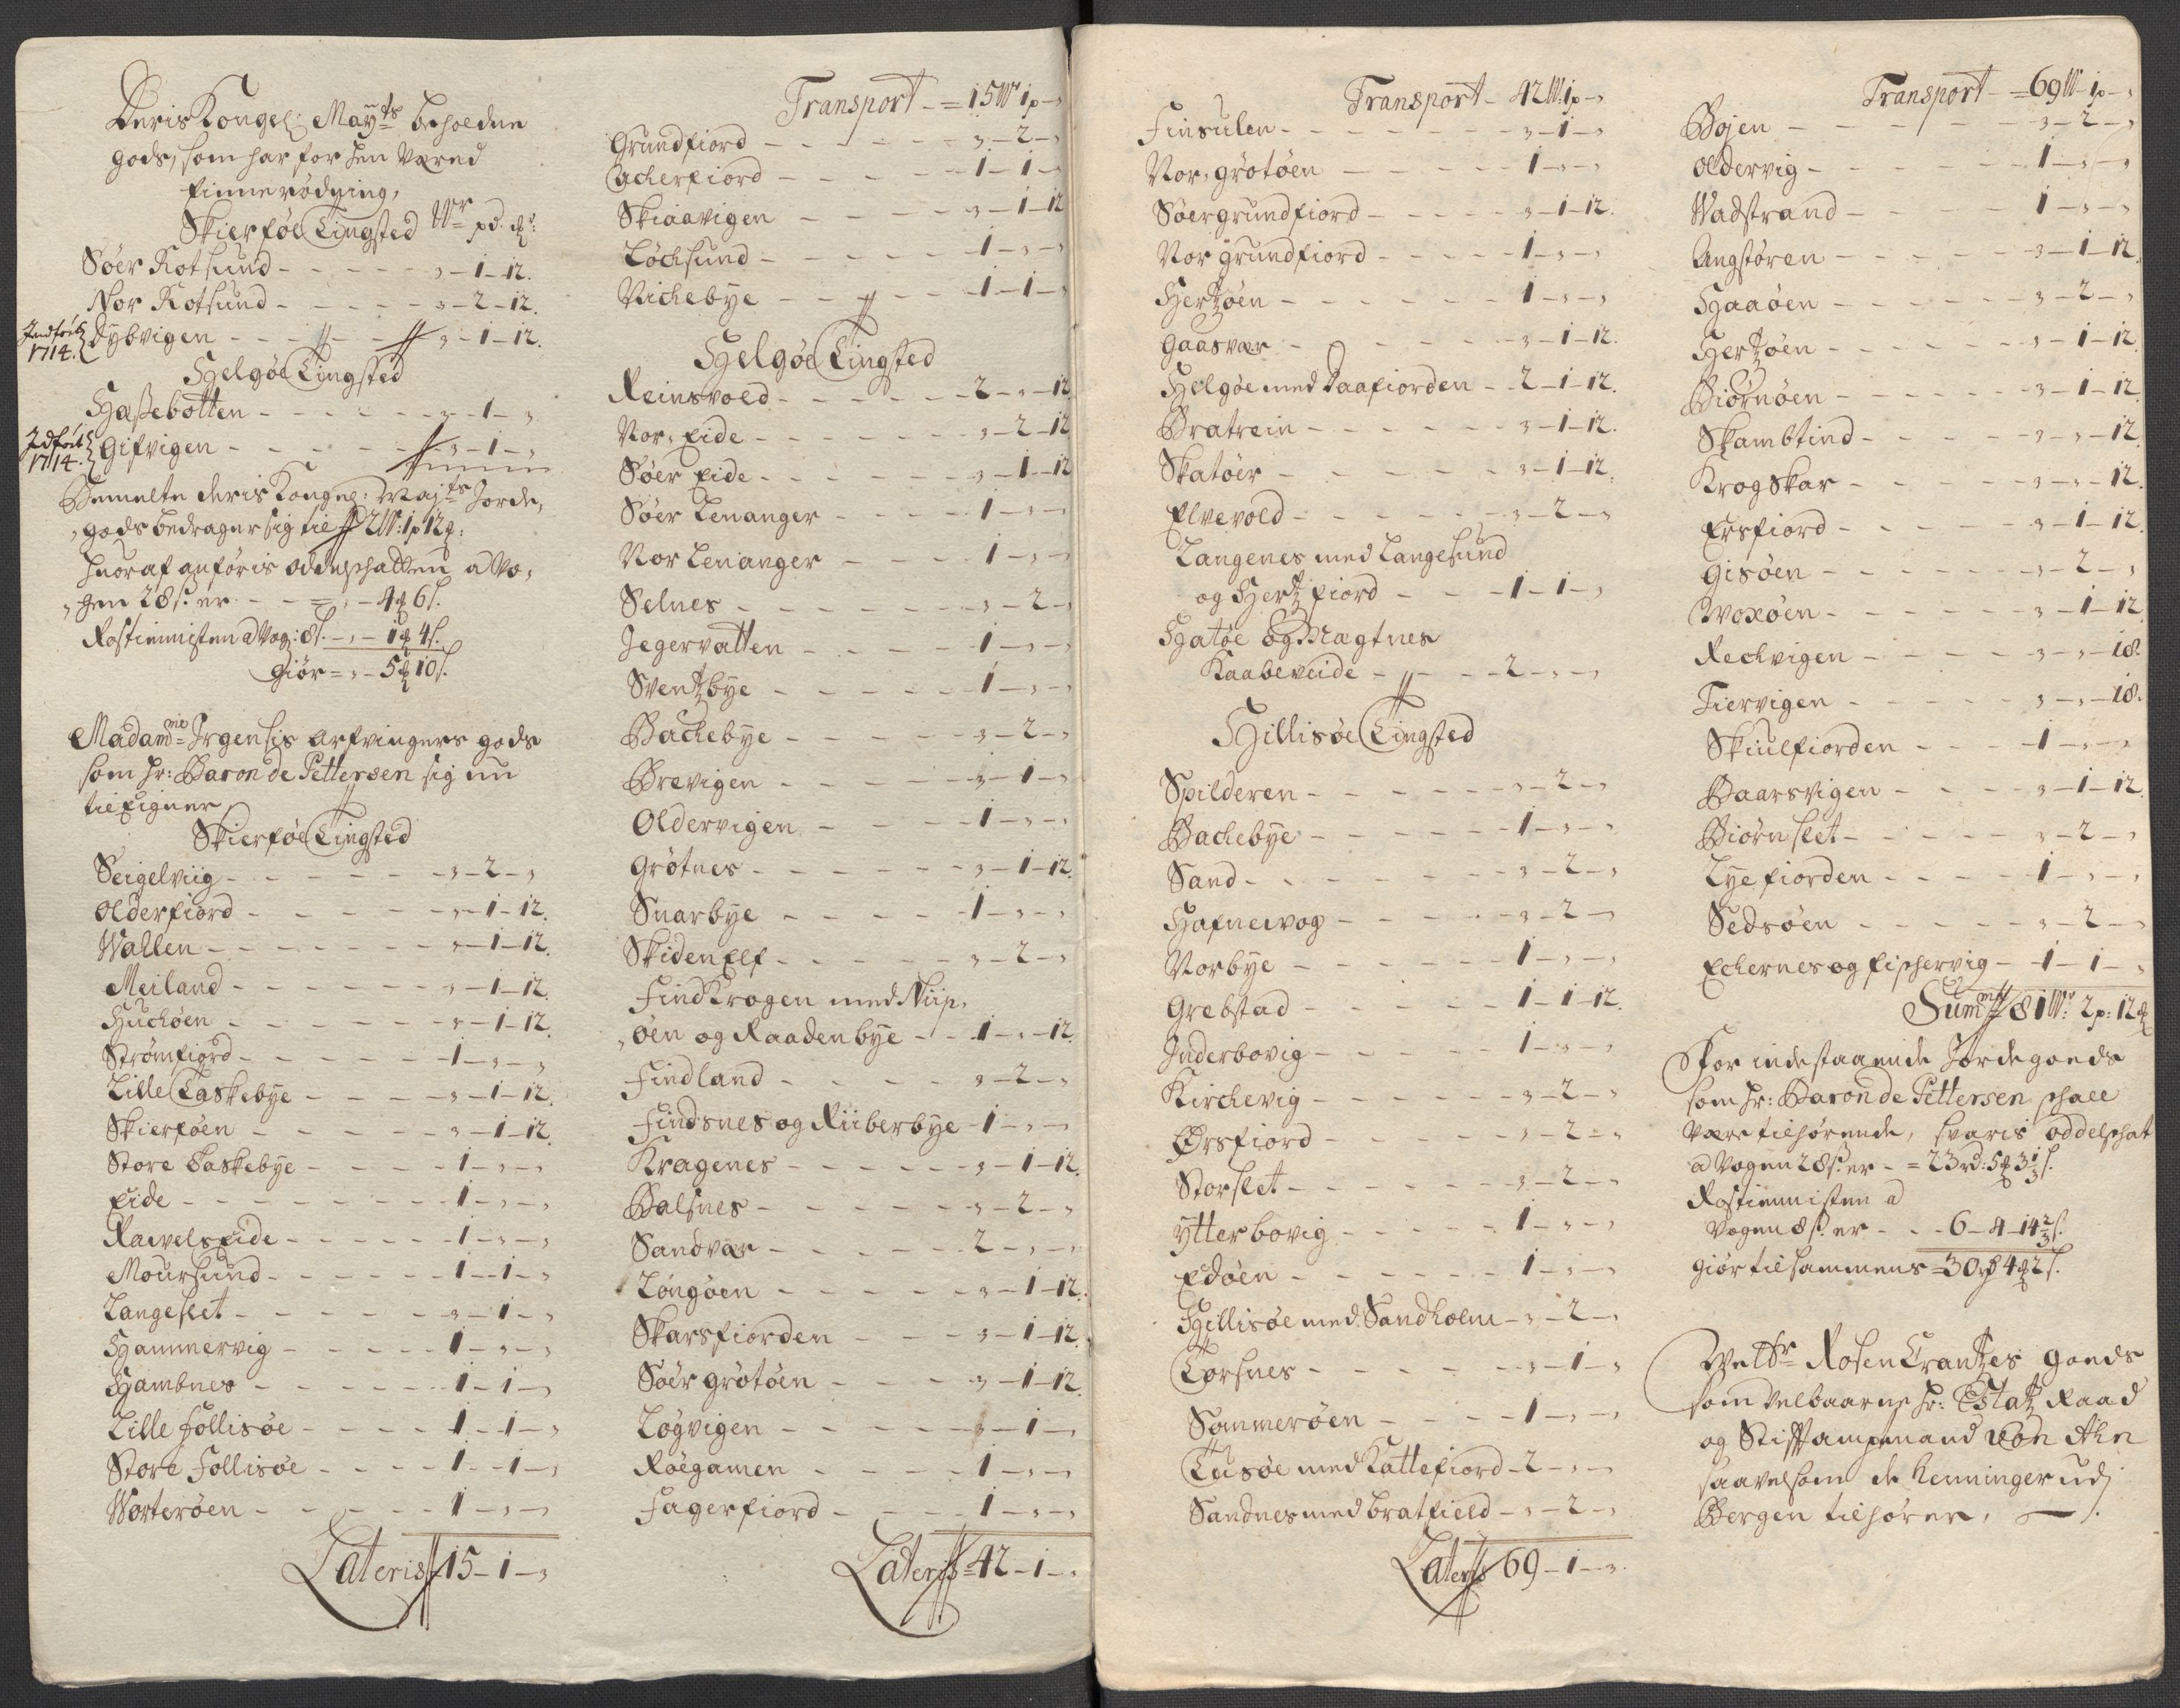 Deris Kongel: Mayts beholdne
gods, som har for hen Været
finnerødning,
Skierføe Tingsted Wr pd. ꝶ:
Söer Rotsund - - - - - „ - 1 - 12.
Nor Rotsund - - - - - „ - 2 - 12.
Indført 1714. Dybvigen - - - - - „ - 1 - 12.
Helgøe Tingsted
Hæssebotten - - - - - „ - 1 - „
Idført 1714. Gifvigen - - - - - „ - 1 - „
Bemelte deris Kongel: Majts Jorde,
gods bedrager sig til 2W: 1p 12ꝶ:
huoraf anføris oddelschatten a Vo,
gen 28s. er - - = „ - 4ꝶ 6s.
Rostienisten a Vog: 8s. - „ - 1ꝶ 4s.
Giør = „ - 5ꝶ 10s.
Madamme Irgensis arfvingers gods
som hr: Baron de Pettersen sig nu
tilEigner
Skierføe Tingsted
Seigelviig - - - - - „ - 2 - „
Olderfiord - - - - - „ - 1 - 12.
Wallen - - - - - „ - 1 - 12.
Meiland - - - - - „ - 1 - 12.
Huchöen - - - - - „ - 1 - 12.
Strömfiord - - - - - 1 - „ - „
Lille Taskebye - - - - „ - 1 - 12.
Skierföen - - - - - „ - 1 - 12.
Store Taskebye - - - - 1 - „ - „
Eide - - - - - 1 - „ - „
Ravelseide - - - - - 1 - „ - „
Moursund - - - - - 1 - 1 - „
Langeslet - - - - - „ - 1 - „
Hammervig - - - - - 1 - „ - „
Hambnes - - - - - 1 - 1 - „
Lille Follisøe - - - - 1 - 1 - „
Store Follisøe - - - - 1 - 1 - „
Worterøen - - - - - 1 - „ - „
Lateris 15 - 1 - „
Transport - = 15W 1p - „
Grundfiord - - - - - „ - 2 - „
Acherfiord - - - - - 1 - 1 - „
Skiaavigen - - - - - „ - 1 - 12
Löchsund - - - - - 1 - „ - „
Vichebye - - - - - 1 - 1 - „
Helgøe Tingsted
Reinsvold - - - - - 2 - „ - 12
Nor, Eide - - - - - „ - 2 - 12
Söer Eide - - - - - „ - 1 - 12
Söer Lenanger - - - - 1 - „ - „
Nor Lenanger - - - - 1 - „ - „
Selnes - - - - - „ - 2 - „
Jegervatten - - - - - 1 - „ - „
Sventzbye - - - - - 1 - „ - „
Bachebye - - - - - „ - 2 - „
Brevigen - - - - - „ - 1 - „
Oldervigen - - - - - 1 - „ - „
Grøtnes - - - - - „ - 1 - 12.
Snarbye - - - - - 1 - „ - „
Skidenelf - - - - - „ - 2 - „
Findkrogen med Niip,
„ øen og Raadenbye - - 1 - „ - 12.
Findland - - - - - „ - 2 - „
Findsnes og Riiberbye - 1 - „ - „
Kragenes - - - - - „ - 1 - 12.
Balsnes - - - - - „ - 2 - „
Sandvær - - - - - 2 - „ - „
Löngöen - - - - - „ - 1 - 12.
Skarsfiorden - - - - „ - 1 - 12.
Söer grötöen - - - - „ - 1 - 12.
Lögvigen - - - - - „ - 1 - „
Röegamen - - - - - 1 - „ - „
Fagerfiord - - - - - 1 - „ - „
Lateris = 42 - 1 - „
Transport - 42W. 1p - „
Finsulen - - - - - „ - 1 - „
Nor, grötöen - - - - - 1 - „ - „
Söergrundfiord - - - - „ - 1 - 12.
Nor grundfiord - - - - 1 - „ - „
Hertzöen - - - - - 1 - „ - „
Gaasvær - - - - - „ - 1 - 12.
Helgøe med Daafiorden - - 2 - 1 - 12.
Bratrein - - - - - „ - 1 - 12.
Skatöer - - - - - „ - 1 - 12.
Elvevold - - - - - „ - 2 - „
Langenes med Langesund
og Hertzfiord - - - 1 - 1 - „
Hatöe og Magtnes
Kaabeveide - - - - 2 - „ - „
Hillisøe Tingsted
Spilderen - - - - - „ - 2 - „
Bachebye - - - - - 1 - „ - „
Sand - - - - - „ - 2 - „
Hafnevog - - - - - „ - 2 - „
Norbye - - - - - 1 - „ - „
Grebstad - - - - - 1 - 1 - 12.
Inderbovig - - - - - 1 - „ - „
Kirchevig - - - - - „ - 2 - „
Ørsfiord - - - - - „ - 2 - „
Storslet - - - - - „ - 2 - „
Ytterbovig - - - - - 1 - „ - „
Edöen - - - - - 1 - „ - „
Hillisøe med Sandholm - „ - 2 - „
Torsnes - - - - - „ - 1 - „
Sommerøen - - - - - 1 - „ - „
Tusøe med Kattefiord - 2 - „ - „
Sandnes med bratfield - „ - 2 - „
Lateris 69 - 1 - „
Transport - = 69W 1p - „
Bojen - - - - - „ - 2 - „
Oldervig - - - - - 1 - „ - „
Wadstrand - - - - - 1 - „ - „
Angstøren - - - - - „ - 1 - 12.
Haaøen - - - - - „ - 2 - „
Hertzöen - - - - - „ - 1 - 12.
Biørnøen - - - - - „ - 1 - 12.
Skambtind - - - - - „ - „ - 12.
Krogskar - - - - - „ - „ - 12.
Ersfiord - - - - - „ - 1 - 12.
Gisöen - - - - - „ - 2 - „
Woxöen - - - - - „ - 1 - 12
Rechvigen - - - - - „ - „ - 18.
Tiervigen - - - - - „ - „ - 18.
Skiulfiorden - - - - 1 - „ - „
Baarsvigen - - - - „ - 1 - 12.
Biørnslet - - - - - „ - 2 - „
Lyefiorden - - - - 1 - „ - „
Sedsöen - - - - - „ - 2 - „
Echernes og fischervig - 1 - 1 - „
Summa 81W: 2p: 12ꝶ
For indestaaende Jordegoeds
som hr: Baron de Pettersen schall
være tilhørende, svaris oddelschat
a Vogen 28s. er - = 23rd: 5ꝶ 3⅓s.
Rostienisten a
Vogen 8s. er - - 6 - 4 - 14⅔s.
giør tilsammens = 30rd 4ꝶ 2s.
Welbr Rosenkrantzes goeds
som velbaarne hr: Etatz Raad
og Stiftampmand von Ahn
saavelsom de Henninger udj
Bergen tilhører,